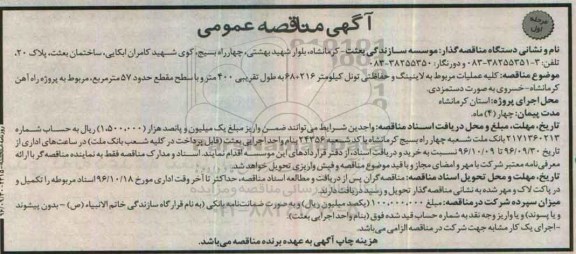 مرحله اول
آگهی مناقصه عمومی
نام و نشانی دستگاه مناقصه گذار: موسسه سازندگی بعثت- کرمانشاه، بلوار شهید بهشتی، چهارراه بسیج، کوی شهید کامران ابکایی، ساختمان بعثت، پلاک ۲۰،
تلفن: ۲-۳۸۲۵۵۳۵۱-۰۸۳ و دورنگار: ۳۸۲۵۵۳۵۰-۰۸۳
موضوع مناقصه: کلیه عملیات مربوط به لاینینگ و حفاظتی تونل کیلومتر ۶۸۰۲۱۶ به طول تقریبی ۴۰۰ متر و با سطح مقطع حدود ۵۷ مترمربع، مربوط به پروژه راه آهن
کرمانشاه-خسروی به صورت دستمزدی.
محل اجرای پروژه: استان کرمانشاه
مدت پیمان: چهار (۴) ماه.
تاریخ، مهلت، مبلغ و محل دریافت اسناد مناقصه: واجدین شرایط می توانند ضمن واریز مبلغ یک میلیون و پانصد هزار (۱,۵۰۰,۰۰۰) ریال به حساب شماره
بانک ملت شعبه چهارراه بسیج کرمانشاه با کد شعبه ۲۴۳۵۶ بنام واحد اجرایی بعثت (قابل پرداخت در کلیه شعب بانک ملت) در ساعت های اداری از
تاریخ ۹۶/۰۹/۳۰ تا ۹۶/۱۰/۰۹ نسبت به خرید و دریافت اسناد، از دفتر قراردادهای این موسسه اقدام نمایند. اسناد و مدارک مناقصه فقط به نماینده مناقصه گر با ارائه
معرفی نامه معتبر شرکت با مهر و امضای مجاز و با قید موضوع مناقصه و فیش واریزی تحویل خواهد شد.
تاریخ، مهلت و محل تحویل اسناد مناقصه: مناقصه گران پس از دریافت و مطالعه اسناد مناقصه، حداکثر تا آخر وقت اداری مورخ ۹۶/۱۰/۱۸ اسناد مربوطه را تکمیل و
در پاکت لاک و مهر شده به نشانی مناقصه گذار تحویل و رسید دریافت دارند.
میزان سپرده شرکت در مناقصه: مبلغ ۱۰۰,۰۰۰,۰۰۰ (یکصد میلیون ریال) و به صورت ضمانت نامه بانکی (به نام قرارگاه سازندگی خاتم الانبیاء (ص) - بدون پیشوند
و یا پسوند) و یا واریز وجه نقد به شماره حساب قید شده فوق (بنام واحد اجرایی بعثت).
-اجرای یک کار مشابه جهت شرکت در مناقصه الزامی می باشد.
هزینه چاپ آگهی به عهده برنده مناقصه می باشد.